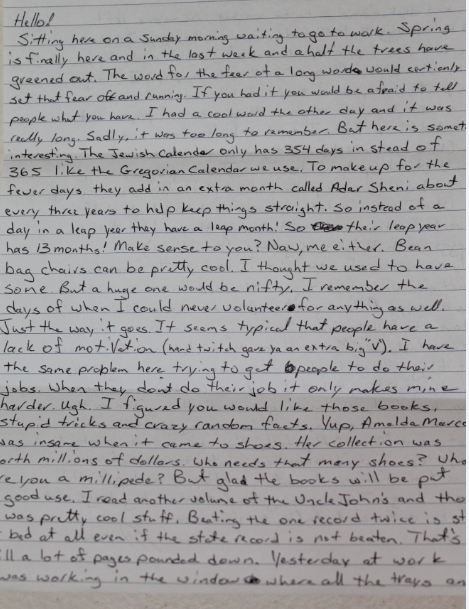 Hello!
Sitting here on a Sunday morning waiting to go to work. Spring
is finally here and in the last week and a half the trees have
greened out. The word for the fear of a long words would certianly
set that fear off and running. If you had it you would be afraid to tell
people what you have. I had a cool word the other day and it was
really long. Sadly, it was too long to remember. But here is somet
interesting. The Jewish Calender only has 354 days in stead of
365 like the Gregorian Calendar we use. To make up for the
fewer days they add in an extra month called Adar Sheni about
every three years to help keep things straight. So instead of a
day in a leap year they have a leap month! So their leap year
has 13 months! Make sense to you? Naw, me either. Bean
bag chairs can be pretty cool. I thought we used to have
some. But a huge one would be nifty. I remember the
days of when I could never volunteer for anything as well.
Just the way it goes. It seems typical that people have a
lack of motiVation (hand twitch gave ya an extra big "V"). I have
the same problem here trying to get people to do their
jobs. When they dont do their job it only makes mine
harder. Ugh. I figured you would like those books,
stupid tricks and crazy random facts. Yup, Amelda Marco
was insane when it came to shoes. Her collection was
orth millions of dollars. Who needs that many shoes? Who
re you a millipede? But glad the books will be put
good use. I read another volume of the Uncle John's and tho
was pretty cool stuff. Beating the one record twice is st
bad at all even if the state record is not beaten. That's
ill a lot of pages pounded down. Yesterday at work
was working in the window where all the trays an